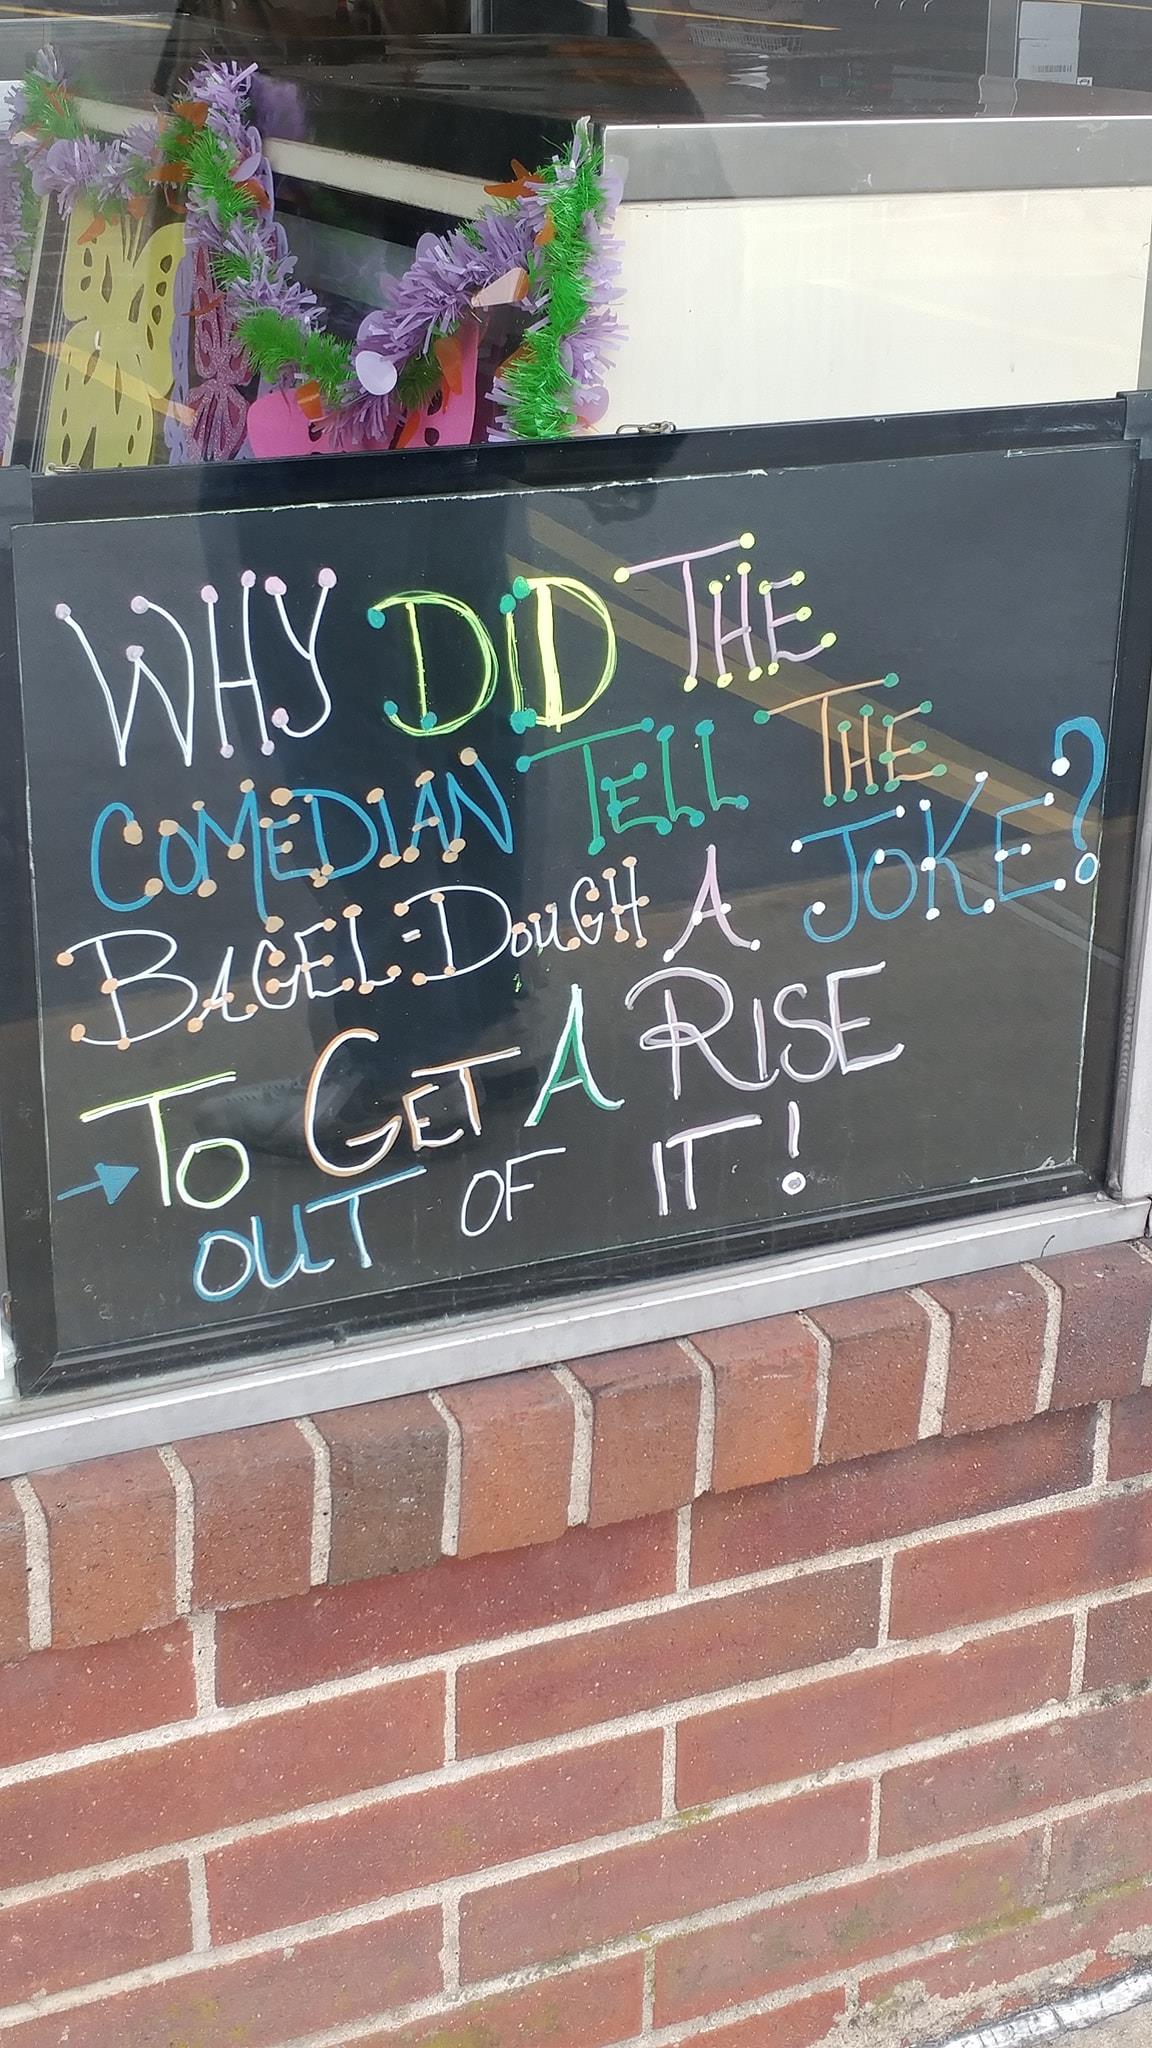 WHY DID THE
COMEDIAN TELL THE
BAGEL-DOUGH A JOKE?
TO GET A RISE
OUT OF IT!